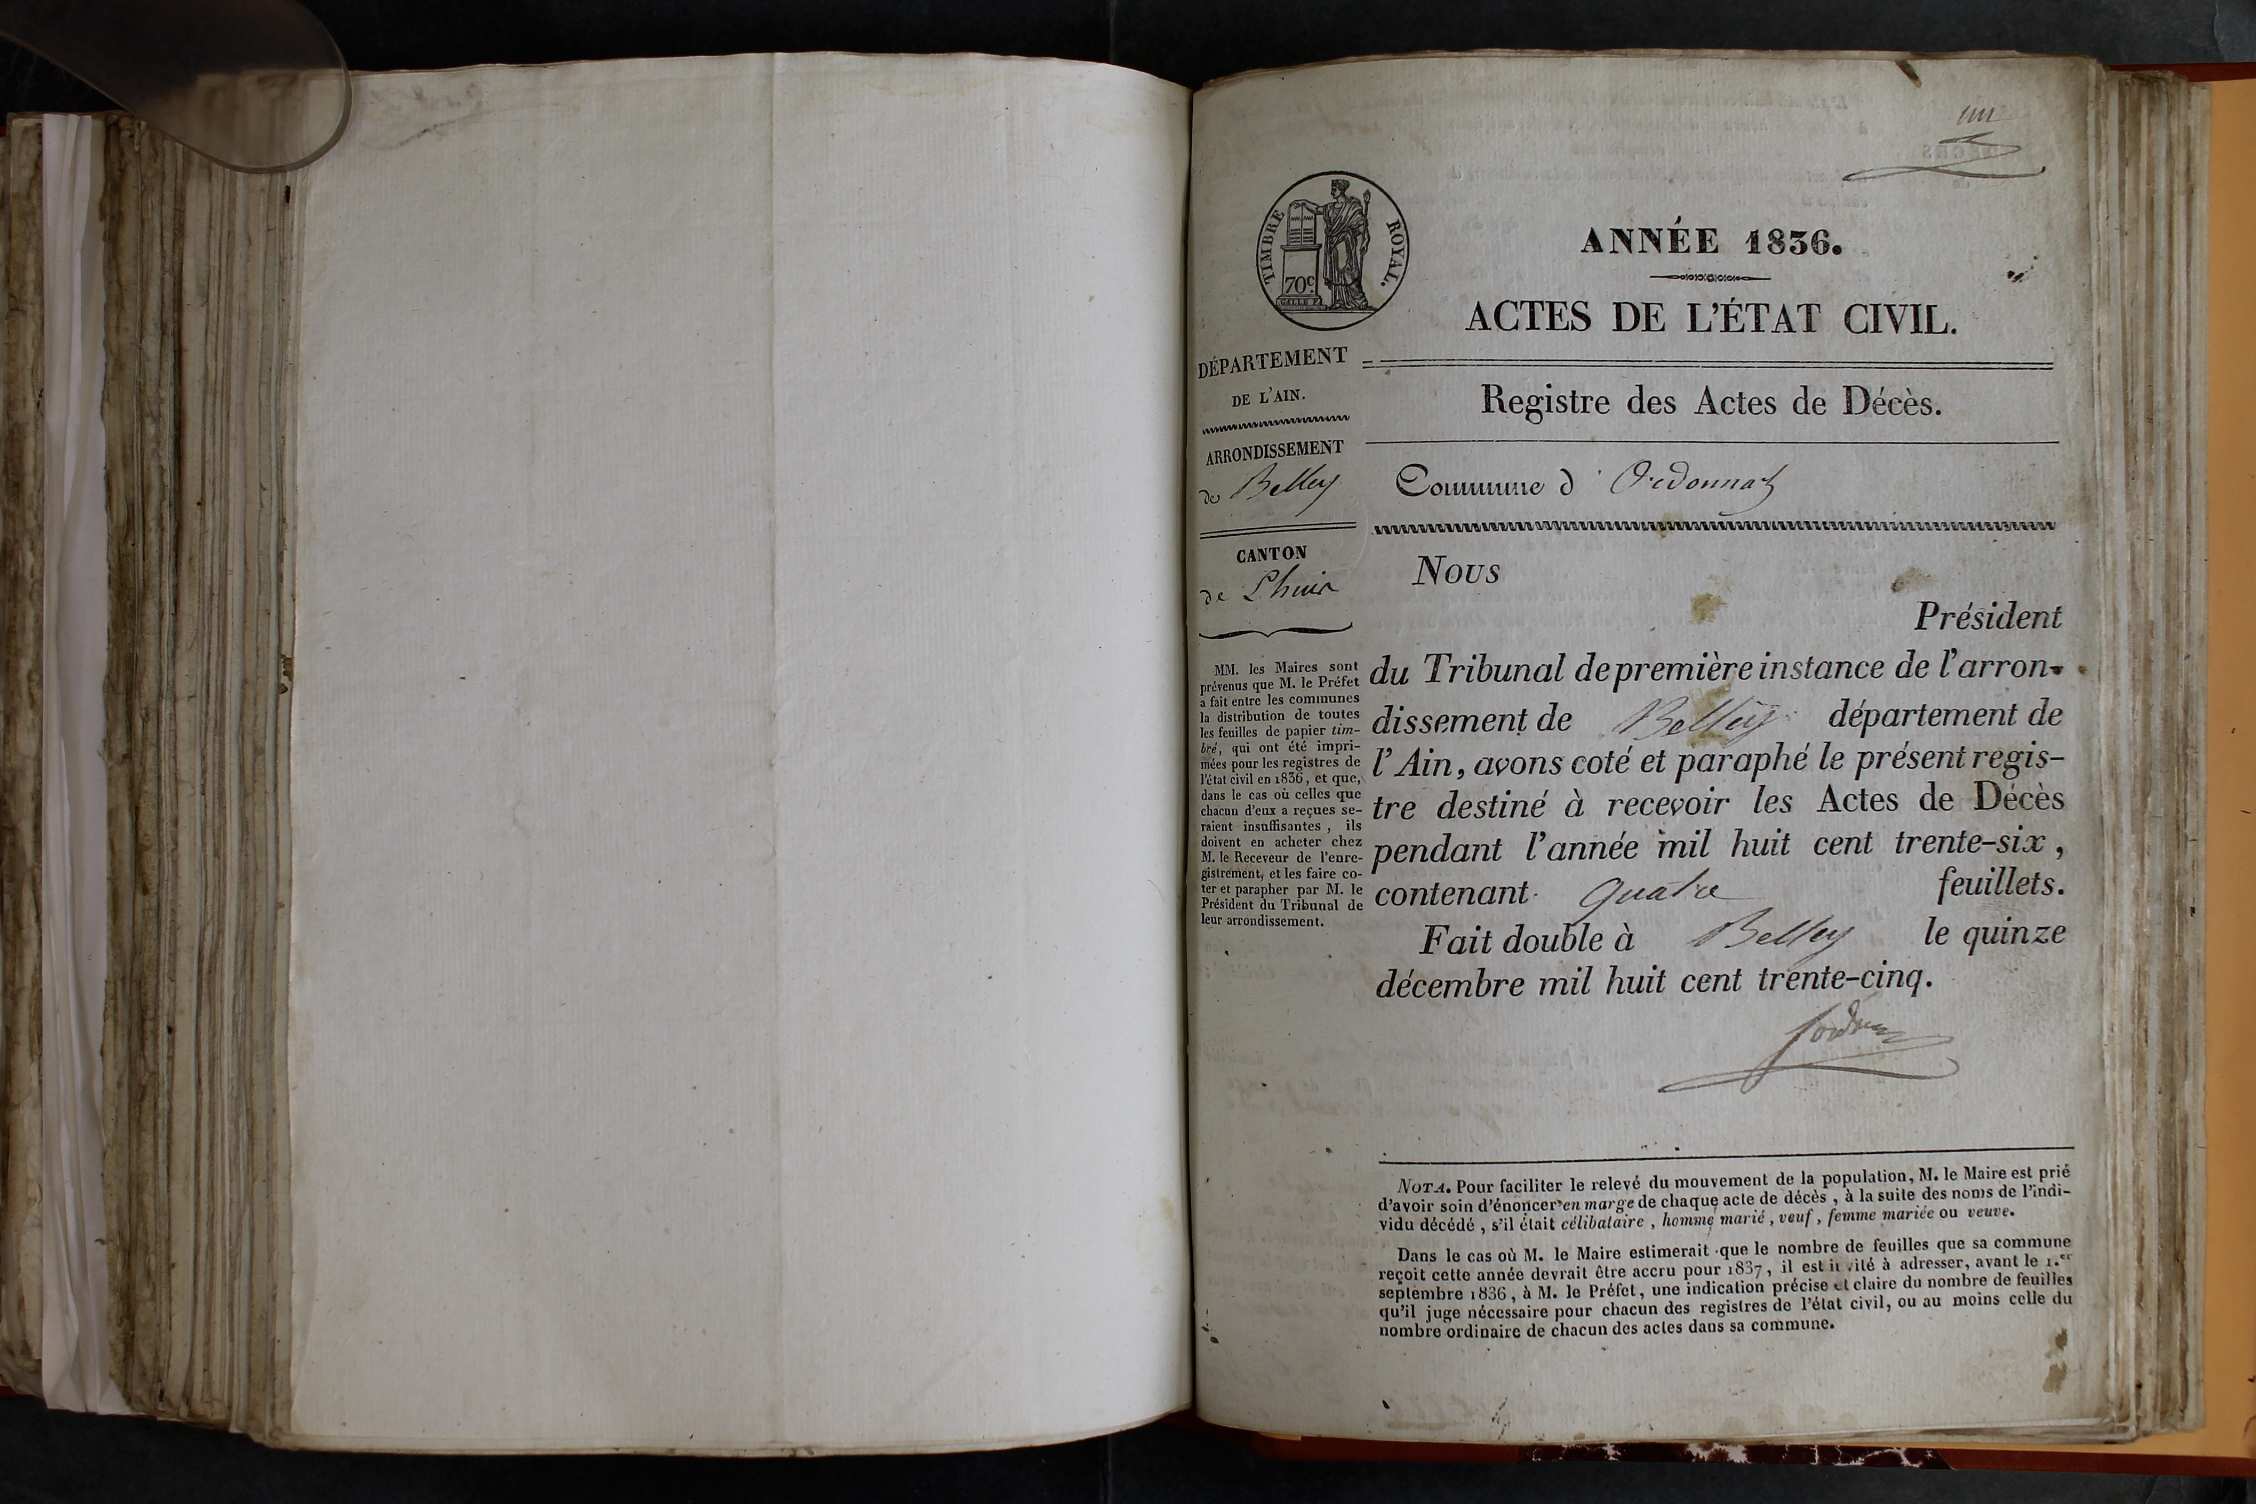 un
TIMBRE ROYAL.
70c.
ANNÉE 1836.
ACTES DE L'ÉTAT CIVIL.
DÉPARTEMENT
DE L'AIN.
ARRONDISSEMENT
de Belley
CANTON
de Lhuis
MM. les Maires sont
prévenus que M. le Préfet
a fait entre les communes
la distribution de toutes
les feuilles de papier tim-
bré, qui ont été impri-
mées pour les registres de
l'état civil en 1836, et que,
dans le cas où celles que
chacun d'eux a reçues se-
raient insuffisantes, ils
doivent en acheter chez
M. le Receveur de l'enre-
gistrement, et les faire co-
ter et parapher par M. le
Président du Tribunal de
leur arrondissement.
Registre des Actes de Décès.
Commune d'Ordonnat
Nous
Président
du Tribunal de première instance de l'arron-
dissement de Belley département de
l'Ain, avons coté et paraphé le présent regis-
tre destiné à recevoir les Actes de Décès
pendant l'année mil huit cent trente-six,
contenant quatre feuillets.
Fait double à Belley le quinze
décembre mil huit cent trente-cinq.
NOTA. Pour faciliter le relevé du mouvement de la population, M. le Maire est prié
d'avoir soin d'énoncer en marge de chaque acte de décès, à la suite des noms de l'indi-
vidu décédé, s'il était célibataire, homme marié, veuf, femme mariée ou veuve.
Dans le cas où M. le Maire estimerait que le nombre de feuilles que sa commune
reçoit cette année devrait être accru pour 1837, il est invité à adresser, avant le 1.er
septembre 1836, à M. le Préfet, une indication précise et claire du nombre de feuilles
qu'il juge nécessaire pour chacun des registres de l'état civil, ou au moins celle du
nombre ordinaire de chacun des actes dans sa commune.